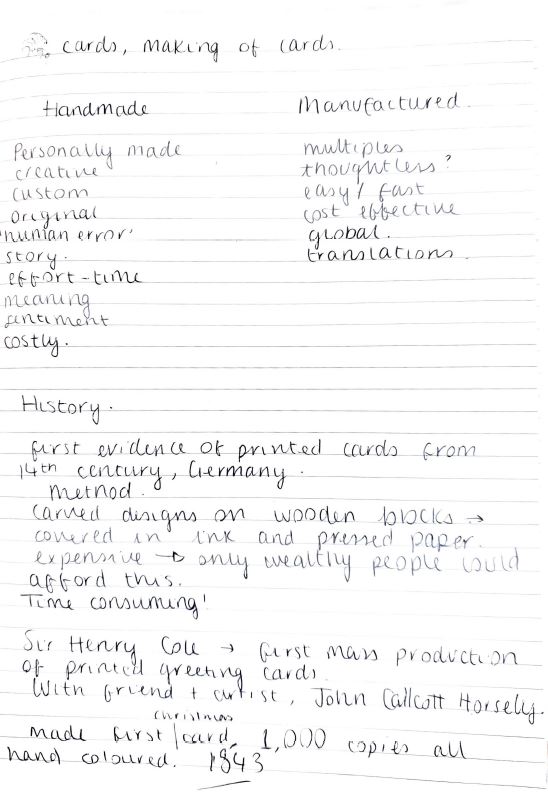 cards, making of cards.
Handmade
Manufactured.
Personally made
creative
custom
original
'human error'
story.
effort-time
meaning
sentiment
costly.
multiples
thoughtless?
easy / fast
cost effective
global.
translations.
History.
first evidence of printed cards from
14th century, Germany.
Method.
Carved designs on wooden blocks →
covered in ink and pressed paper.
expensive → only wealthy people could
afford this.
Time consuming!
Sir Henry Cole → first mass production
of printed greeting cards.
With friend + artist, John Callcott Horsely.
christmas
made first card, 1,000 copies all
hand coloured. 1843